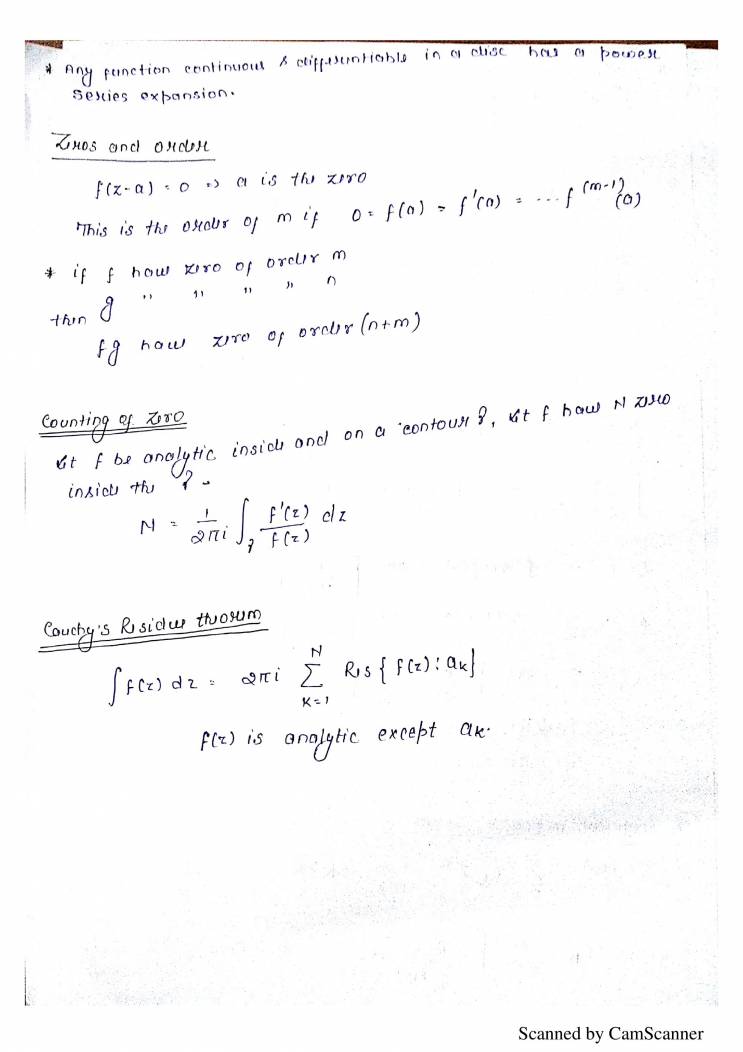 * Any function continuous & differentiable in a disc has a power
series expansion.
Zeros and order
f(z-a) = 0 => a is the zero
This is the order of m if 0 = f(a) = f'(a) = ... f^(m-1)(a)
* if f have zero of order m
then g " " " " n
fg have zero of order (n+m)
Counting of Zero
let f be analytic inside and on a contour γ, let f have N zero
inside the γ.
N = 1/2πi ∫_γ f'(z)/f(z) dz
Cauchy's Residue theorem
∫ f(z) dz = 2πi Σ_{K=1}^{N} Res { f(z) : a_k }
f(z) is analytic except a_k.
Scanned by CamScanner